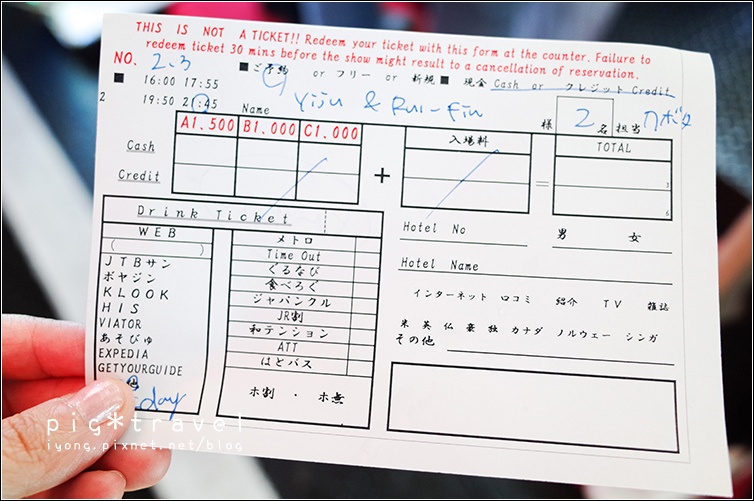 THIS IS NOT A TICKET!! Redeem your ticket with this form at the counter. Failure to
redeem ticket 30 mins before the show might result to a cancellation of reservation.
NO. 2.3 ■ご予約 or フリー or 新規 ■ 現金 Cash or クレジット Credit
■ 16:00 17:55
2 19:50 21:45 Name Yiju & Rui-Fin 様 2 名 担当
A1.500 B1.000 C1.000 入場料 TOTAL
Cash
Credit
+ =
Drink Ticket
WEB
( )
JTBサン
ボヤジン
KLOOK
HIS
VIATOR
あそびゅ
EXPEDIA
GETYOURGUIDE
他
day
メトロ
Time Out
ぐるなび
食べろぐ
ジャパンクル
JR割
和テンション
ATT
はとバス
ホ割 ・ ホ無
Hotel No 男 女
Hotel Name
インターネット 口コミ 紹介 TV 雑誌
米 英 仏 豪 独 カナダ ノルウェー シンガ
その他
pig*travel
iyong.pixnet.net/blog